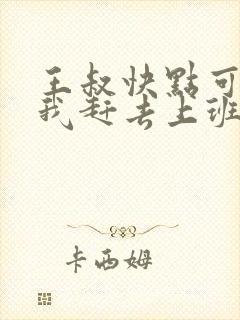 王叔快點可
我赶去上班
卡西姆